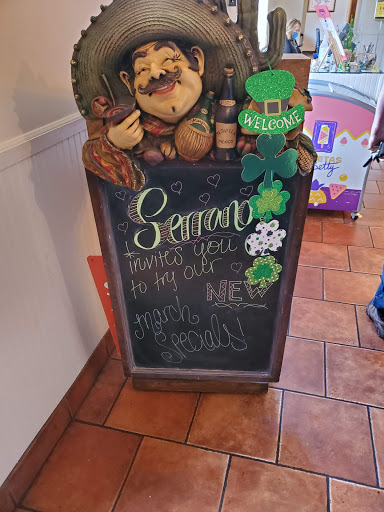 WELCOME
Serrano
invites you
to try our
NEW
march
specials!